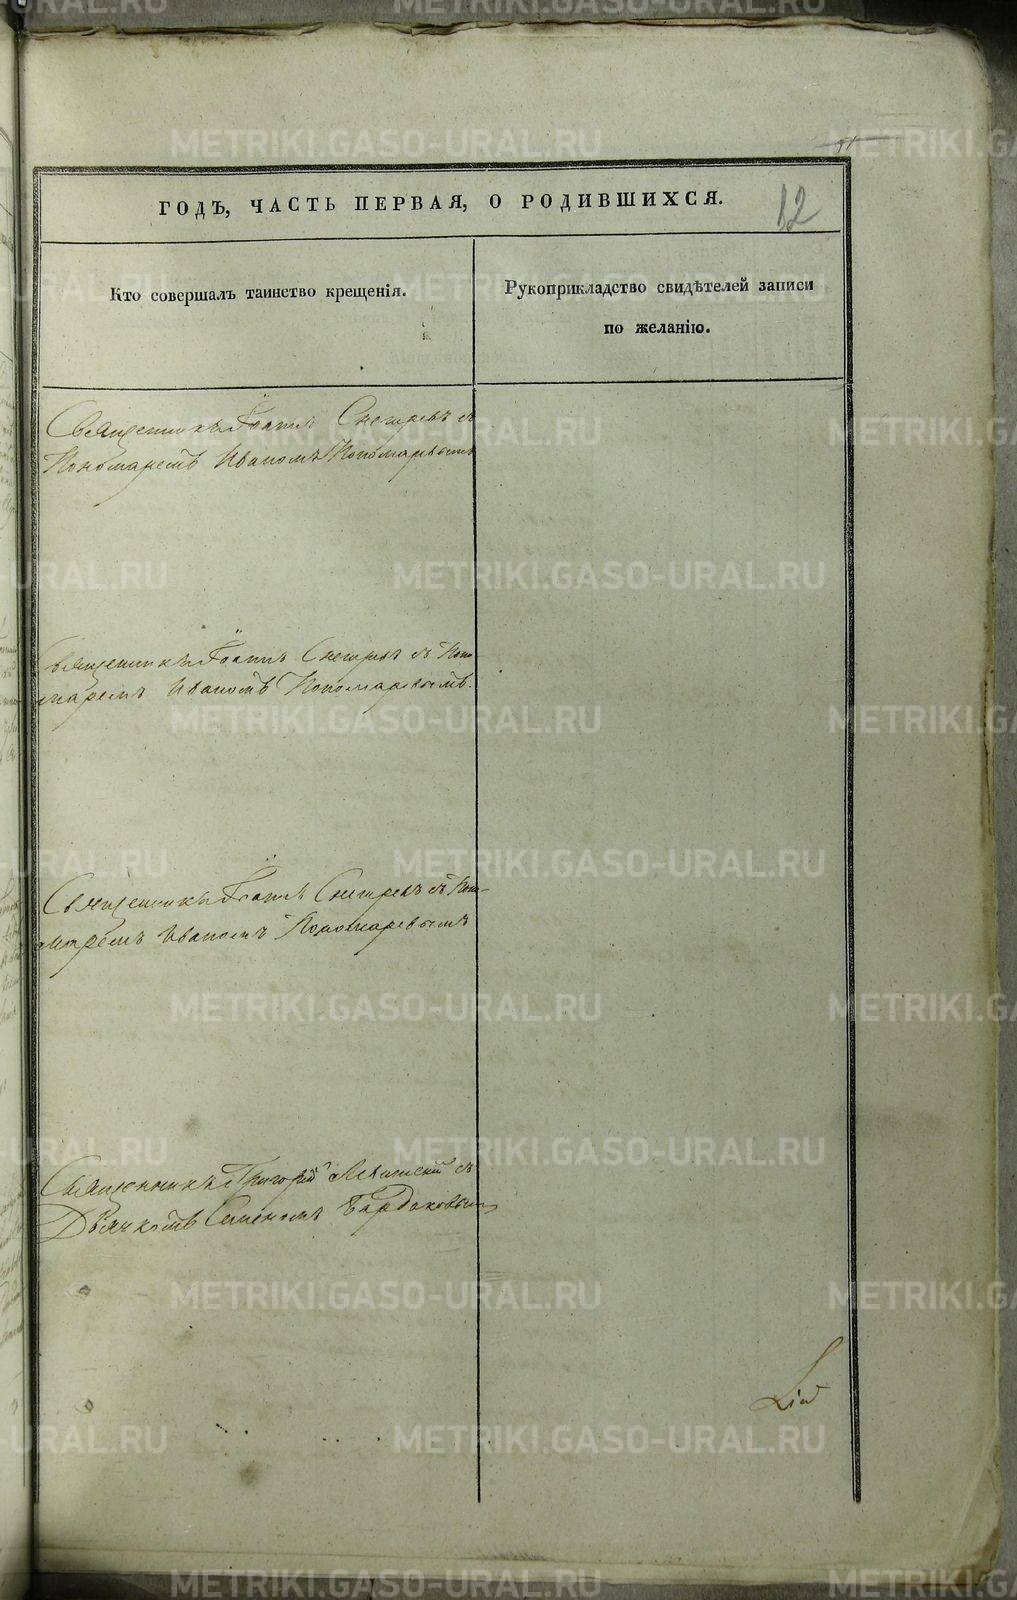 51
ГОДЪ, ЧАСТЬ ПЕРВАЯ, О РОДИВШИХСЯ.
12
Кто совершалъ таинство крещенія.
Рукоприкладство свидѣтелей записи
по желанію.
Священникъ Іоаннъ Снегиревъ съ
Пономаремъ Иваномъ Пономаревымъ
Священникъ Іоаннъ Снегиревъ съ Поно
маремъ Иваномъ Пономаревымъ.
Священникъ Іоаннъ Снегиревъ съ Поно-
маремъ Иваномъ Пономаревымъ
Священникъ Григорій Левитскій съ
Дьячкомъ Семеномъ Бардаковымъ
METRIKI.GASO-URAL.RU